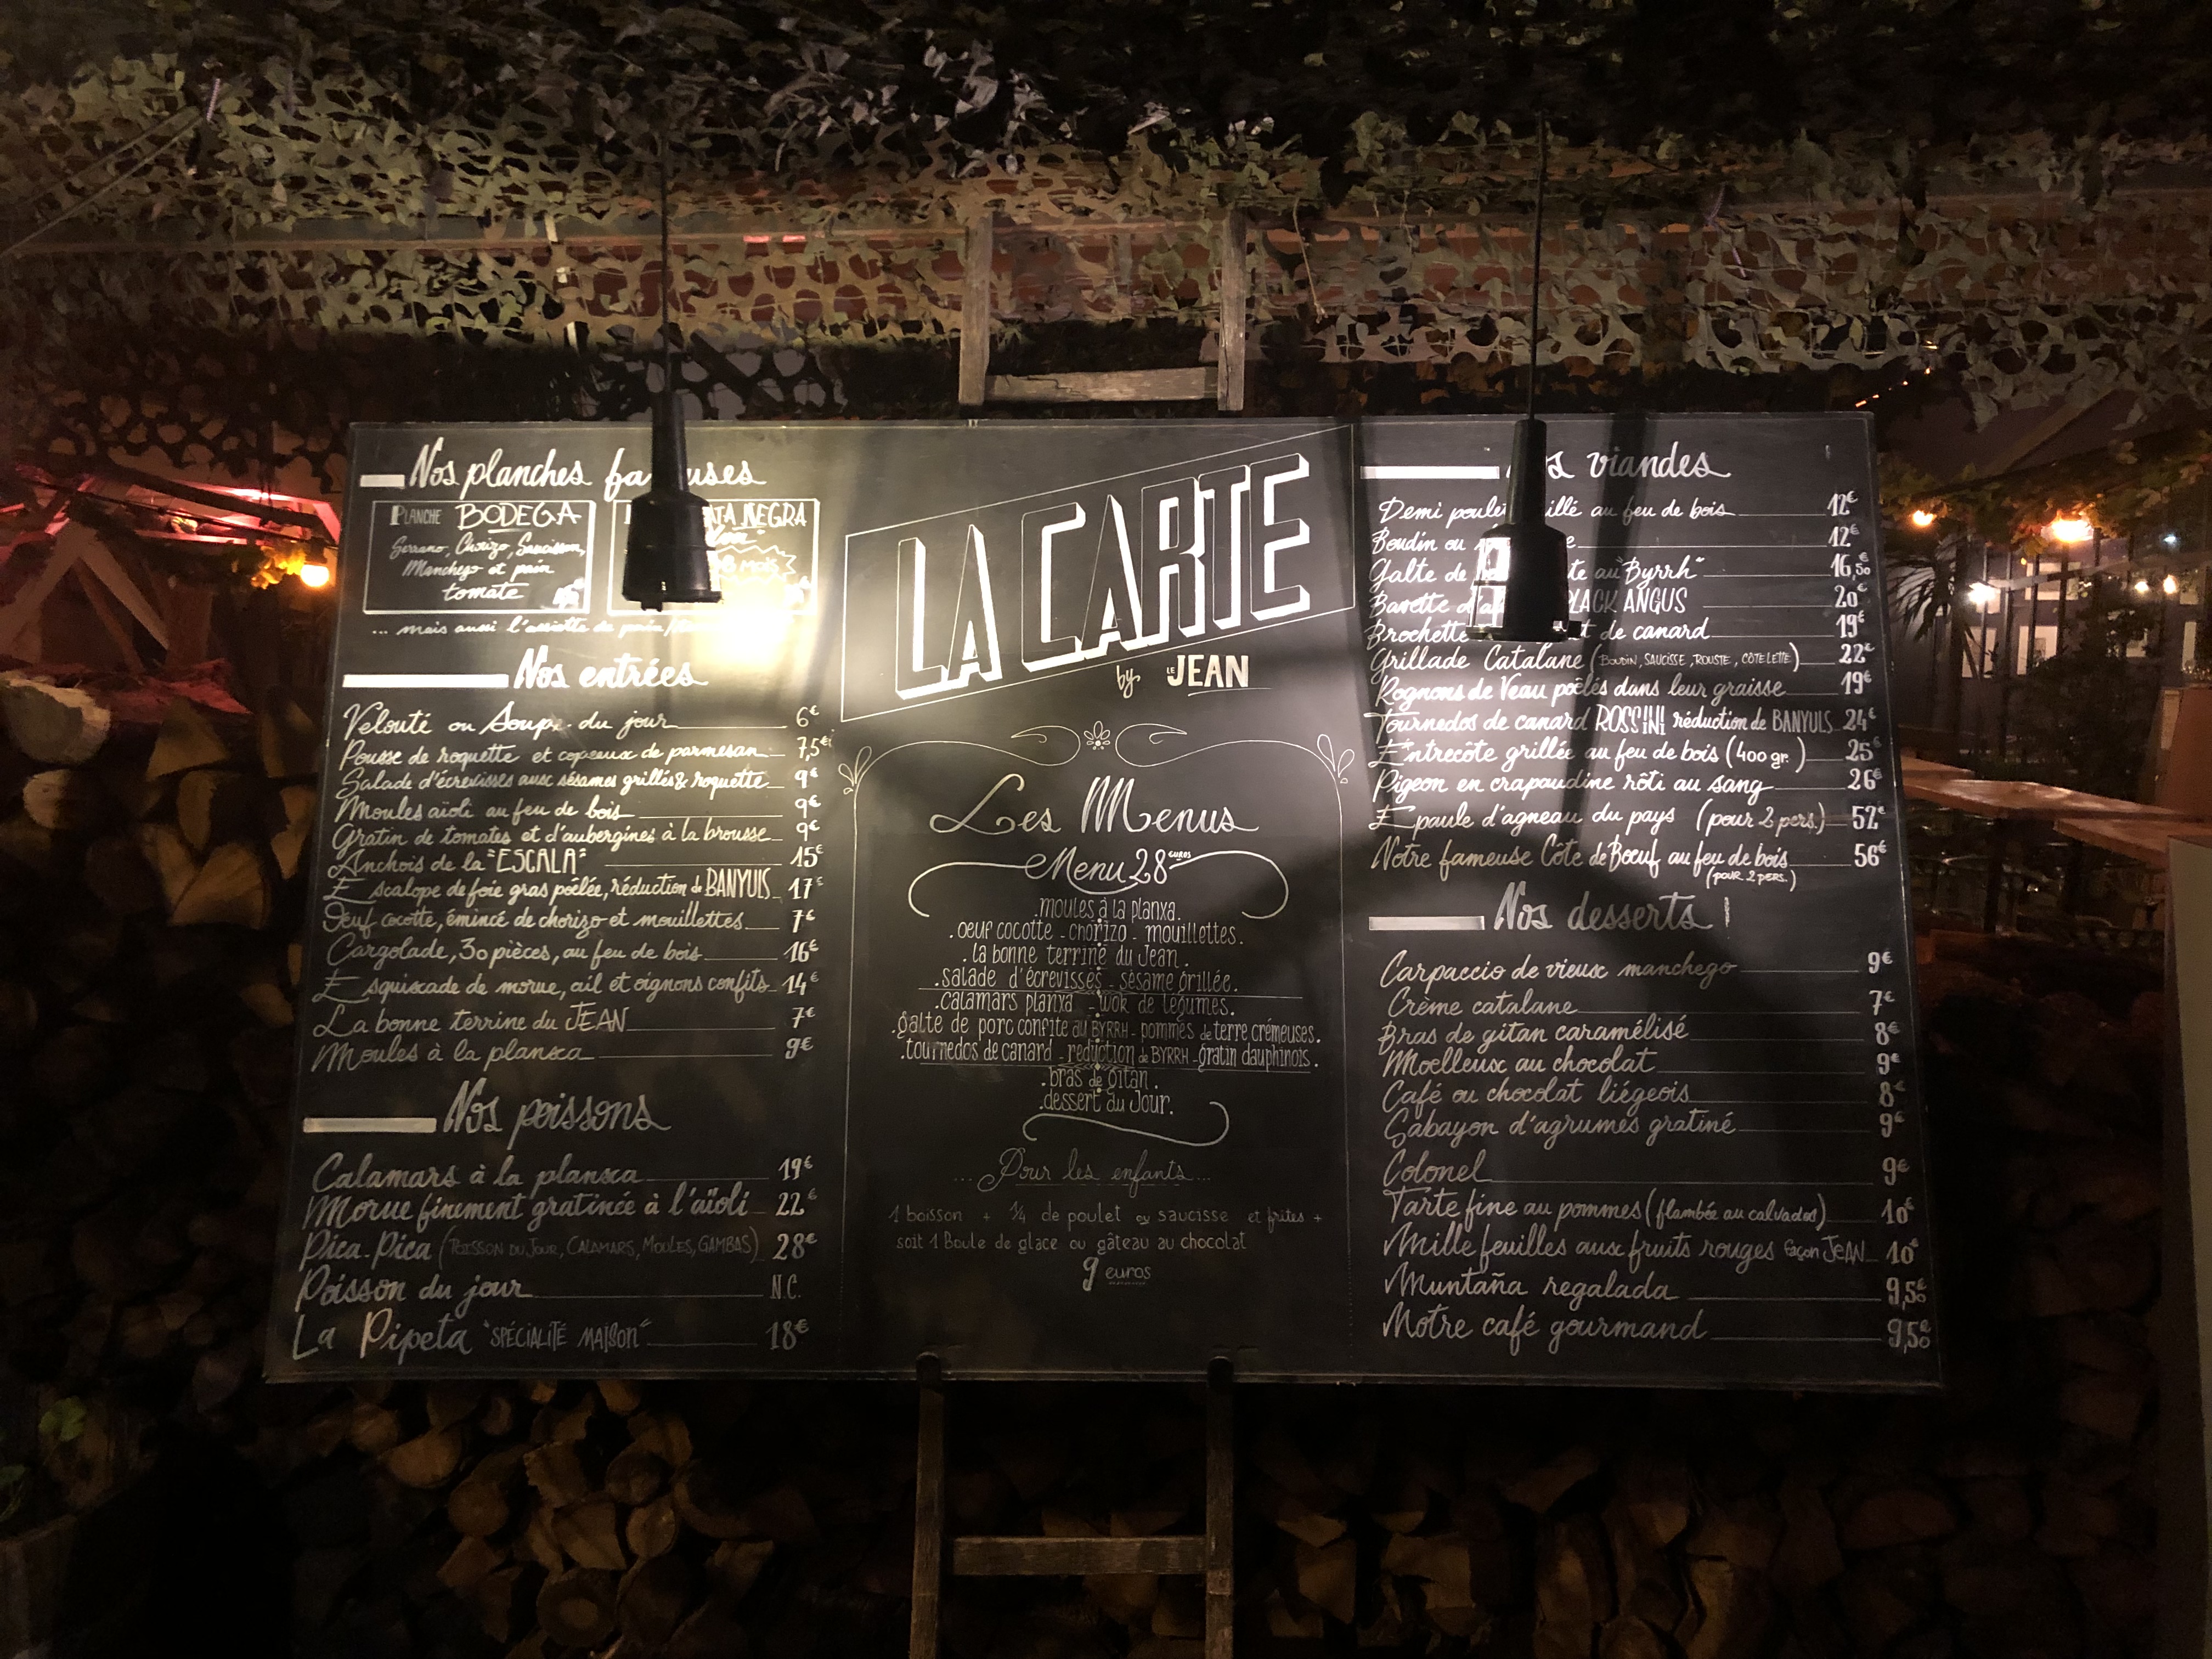 Nos planches
PLANCHE BODEGA
Serrano, Chorizo, Saucisson,
Manchego et pain
tomate
NEGRA
MOIS
... mais aussi l'assiette de
Nos entrées
Velouté ou Soupe du jour 6€
Pousse de roquette et copeaux de parmesan 7,5€
Salade d'écrevisses aux sésames grillés & roquette 9€
Moules aïoli au feu de bois 9€
Gratin de tomates et d'aubergines à la brousse 9€
Anchois de la "ESCALA" 15€
Escalope de foie gras poêlée, réduction de BANYULS 17€
Oeuf cocotte, émincé de chorizo et mouillettes 7€
Cargolade, 30 pièces, au feu de bois 16€
Esquixade de morue, ail et oignons confits 14€
La bonne terrine du JEAN 7€
Moules à la planxa 9€
Nos poissons
Calamars à la planxa 19€
Morue finement gratinée à l'aïoli 22€
Pica-Pica (POISSON DU JOUR, CALAMARS, MOULES, GAMBAS) 28€
Poisson du jour N.C.
La Pipeta "SPÉCIALITÉ MAISON" 18€
LA CARTE
by LE JEAN
Les Menus
Menu 28 EUROS
.moules à la planxa.
.oeuf cocotte - chorizo - mouillettes.
.la bonne terrine du Jean.
.salade d'écrevisses - sésame grillée.
.calamars planxa - wok de légumes.
.galte de porc confite au BYRRH - pommes de terre crémeuses.
.tournedos de canard - reduction de BYRRH - gratin dauphinois.
.bras de gitan.
.dessert du Jour.
...Pour les enfants...
1 boisson + 1/4 de poulet ou saucisse et frites +
soit 1 Boule de glace ou gâteau au chocolat
9 euros
viandes
Demi poulet au feu de bois 12€
Boudin ou 12€
Galte de au "Byrrh" 16,50€
Bavette BLACK ANGUS 20€
Brochette de canard 19€
Grillade Catalane (BOUDIN, SAUCISSE, ROUSTE, CÔTELETTE) 22€
Rognons de Veau poêlés dans leur graisse 19€
Tournedos de canard ROSSINI réduction de BANYULS 24€
Entrecôte grillée au feu de bois (400 gr.) 25€
Pigeon en crapaudine rôti au sang 26€
Epaule d'agneau du pays (pour 2 pers.) 52€
Notre fameuse Côte de Boeuf au feu de bois 56€
(POUR 2 PERS.)
Nos desserts
Carpaccio de vieux manchego 9€
Crème catalane 7€
Bras de gitan caramélisé 8€
Moelleux au chocolat 9€
Café ou chocolat liégeois 8€
Sabayon d'agrumes gratiné 9€
Colonel 9€
Tarte fine au pommes (flambée au calvados) 10€
Mille feuilles aux fruits rouges façon JEAN 10€
Muntaña regalada 9,50€
Notre café gourmand 9,50€